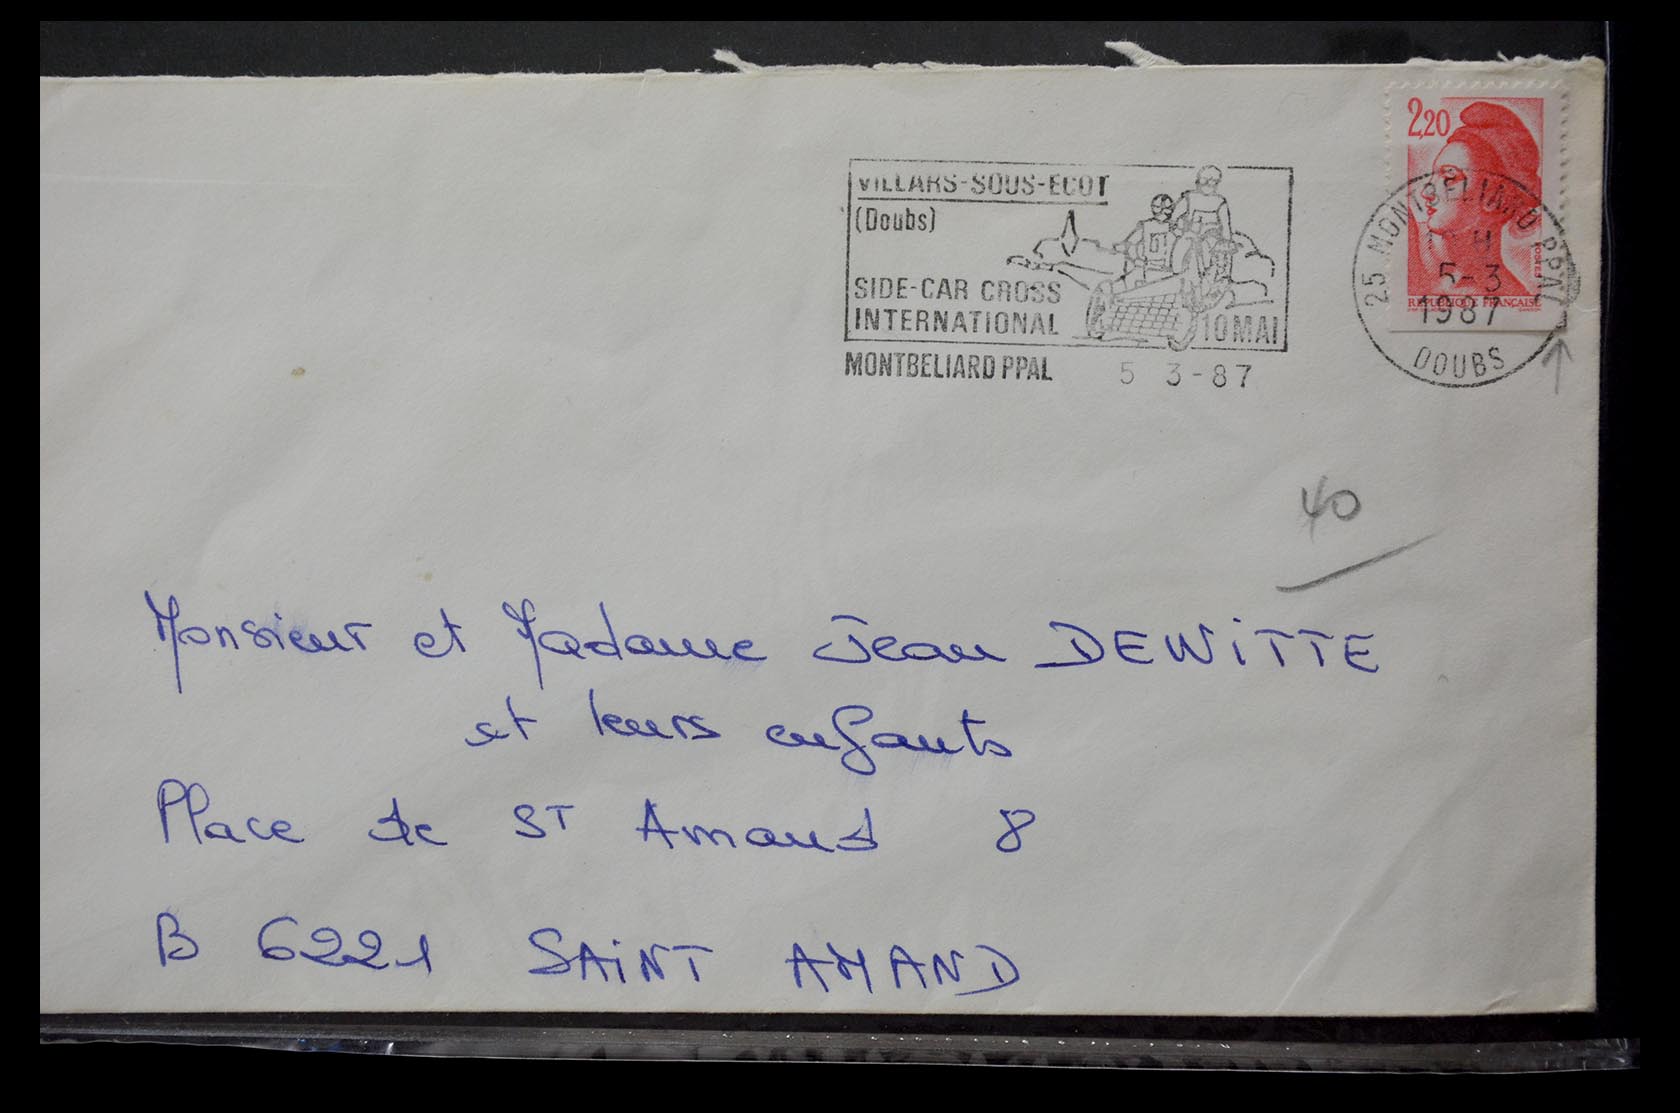 2,20
RÉPUBLIQUE FRANÇAISE
VILLARS-SOUS-ECOT
(Doubs)
SIDE-CAR CROSS
INTERNATIONAL
10 MAI
MONTBELIARD PPAL
5 3-87
25 MONTBELIARD PPAL
5-3
1987
DOUBS
40
Monsieur et Madame Jean DEWiTTE
et leurs enfants
Place de ST Amand 8
B 6221 SAiNT AMAND